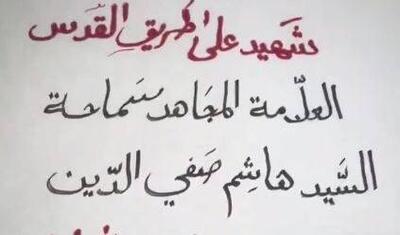 شهيد على طريق القدس
العلّامة المجاهد سماحة
السَّيد هاشم صفي الدّين